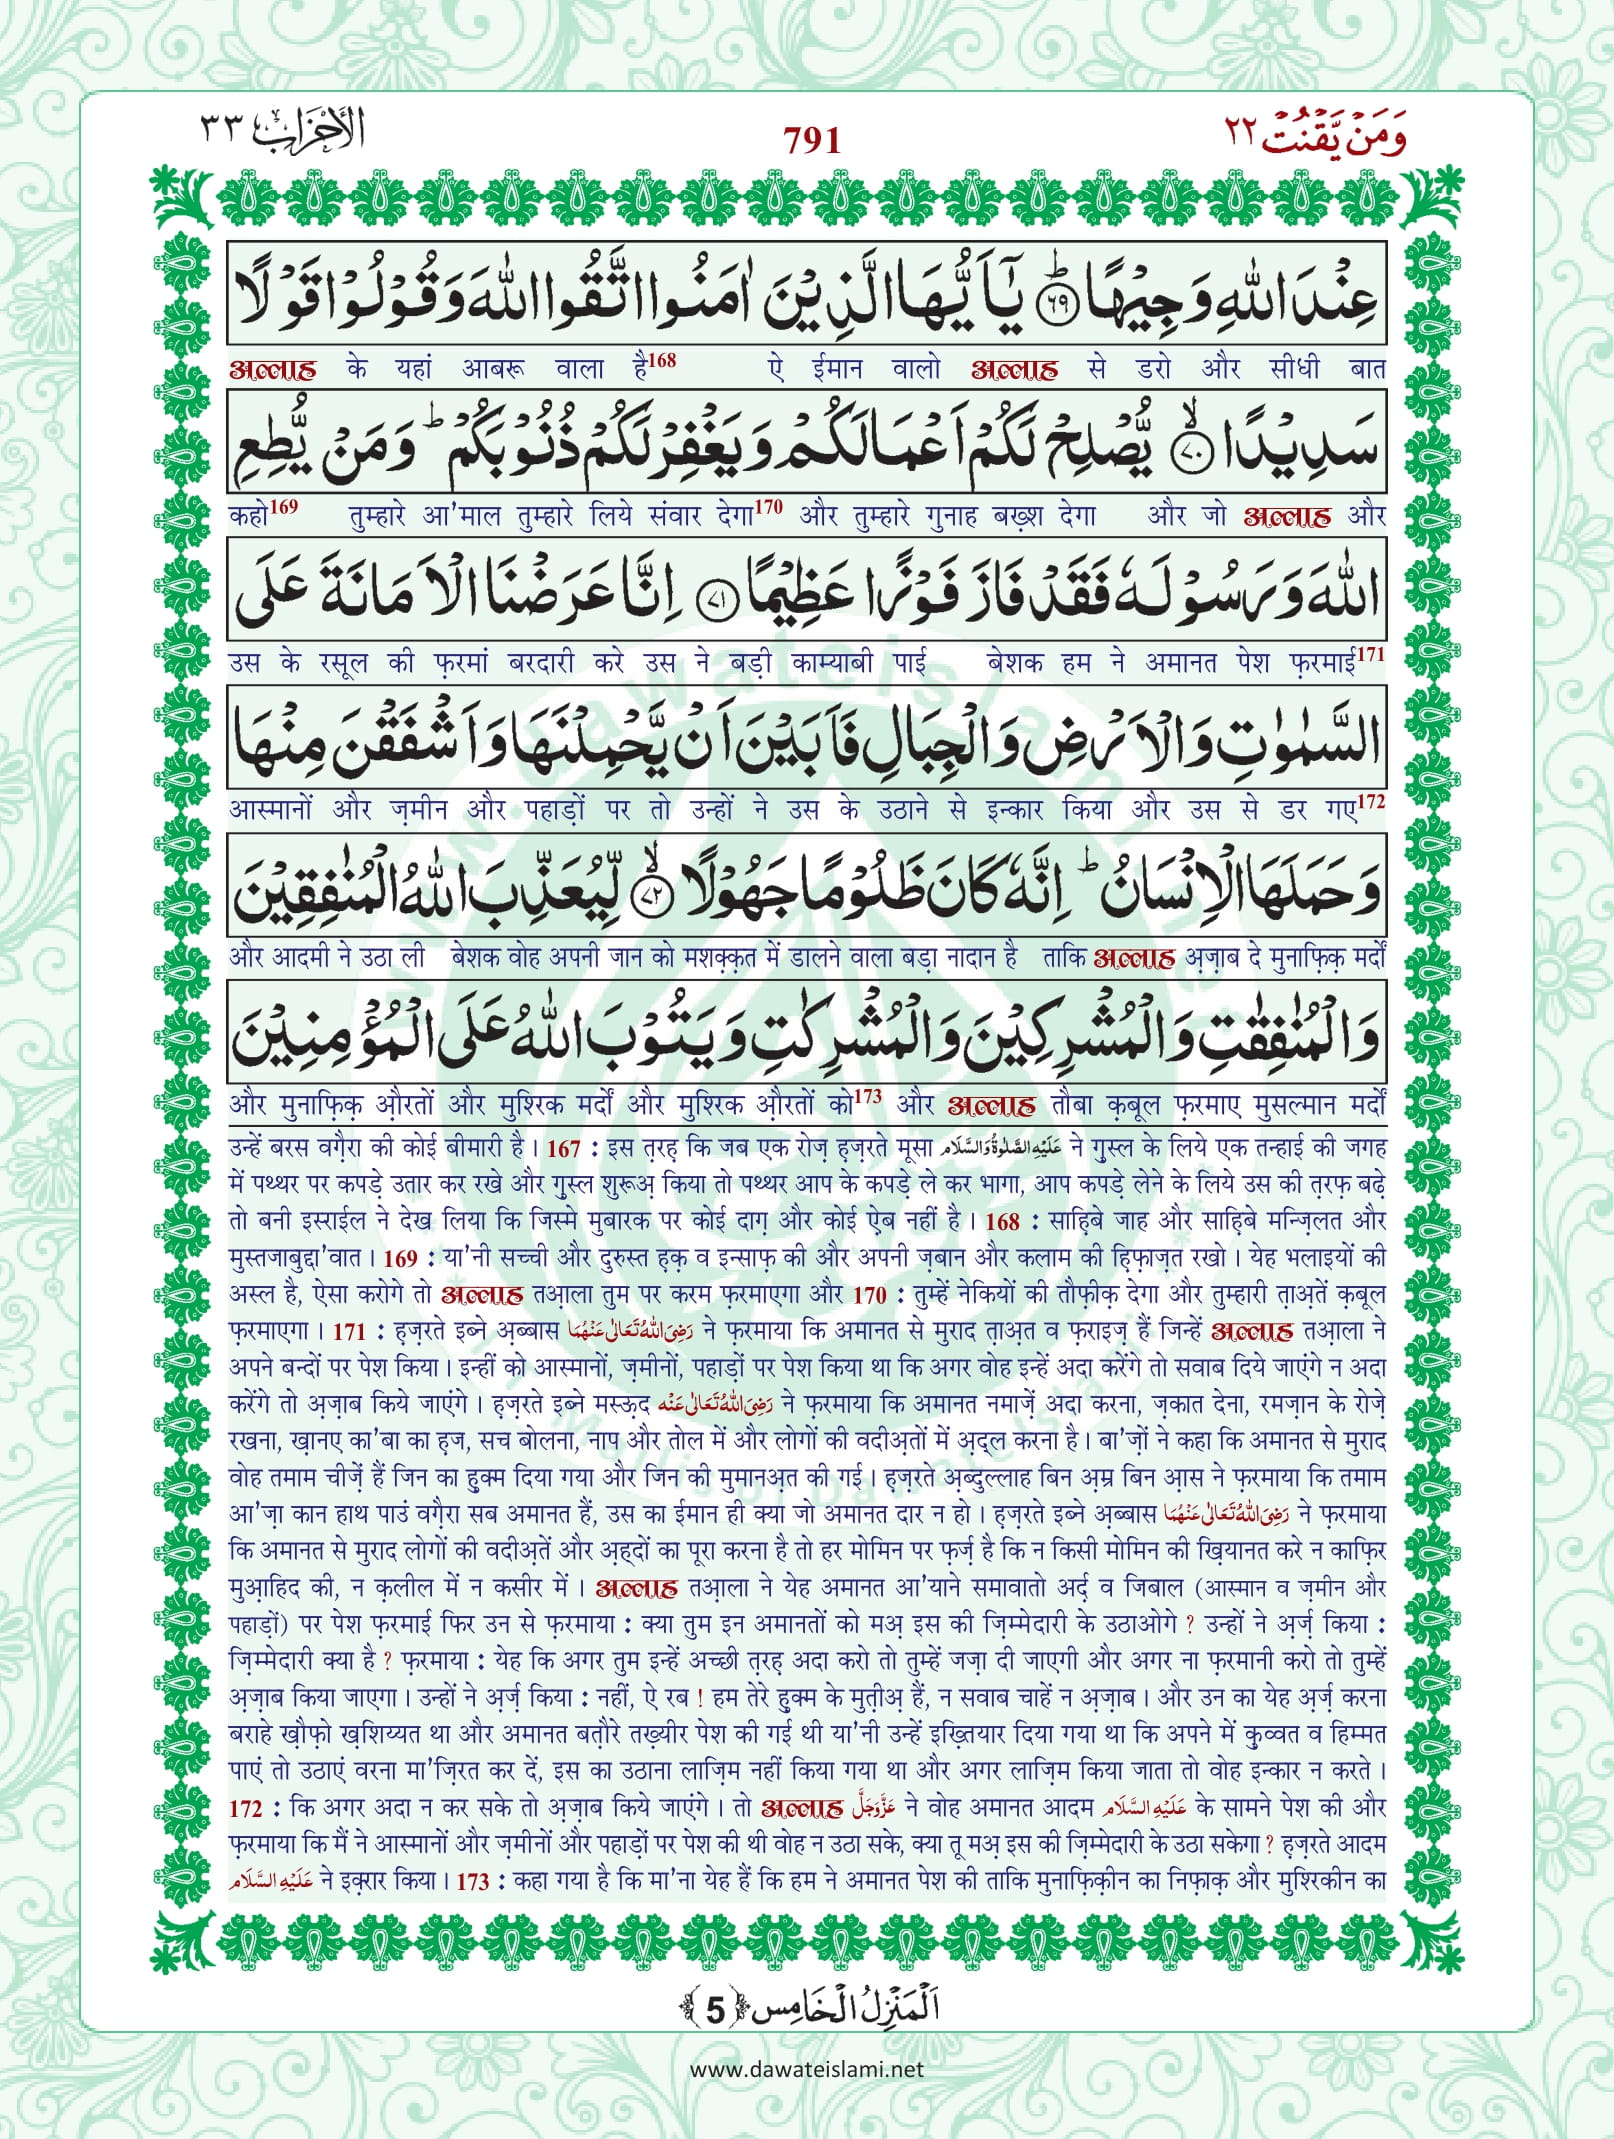 وَمَنْ يَّقْنُتْ ٢٢ 791 الْاَحْزَاب ٣٣
عِنْدَ اللّٰهِ وَجِیْهًا ﴿٦٩﴾ؕ یٰۤاَیُّهَا الَّذِیْنَ اٰمَنُوا اتَّقُوا اللّٰهَ وَ قُوْلُوْا قَوْلًا
अल्लाह के यहां आबरू वाला है168 ऐ ईमान वालो अल्लाह से डरो और सीधी बात
سَدِیْدًا ﴿٧٠﴾ۙ یُّصْلِحْ لَكُمْ اَعْمَالَكُمْ وَ یَغْفِرْ لَكُمْ ذُنُوْبَكُمْ ؕ وَ مَنْ یُّطِعِ
कहो169 तुम्हारे आ'माल तुम्हारे लिये संवार देगा170 और तुम्हारे गुनाह बख़्श देगा और जो अल्लाह और
اللّٰهَ وَ رَسُوْلَهٗ فَقَدْ فَازَ فَوْزًا عَظِیْمًا ﴿٧١﴾ اِنَّا عَرَضْنَا الْاَمَانَةَ عَلَى
उस के रसूल की फ़रमां बरदारी करे उस ने बड़ी काम्याबी पाई बेशक हम ने अमानत पेश फ़रमाई171
السَّمٰوٰتِ وَ الْاَرْضِ وَ الْجِبَالِ فَاَبَیْنَ اَنْ یَّحْمِلْنَهَا وَ اَشْفَقْنَ مِنْهَا
आस्मानों और ज़मीन और पहाड़ों पर तो उन्हों ने उस के उठाने से इन्कार किया और उस से डर गए172
وَ حَمَلَهَا الْاِنْسَانُ ؕ اِنَّهٗ كَانَ ظَلُوْمًا جَهُوْلًا ﴿٧٢﴾ۙ لِّیُعَذِّبَ اللّٰهُ الْمُنٰفِقِیْنَ
और आदमी ने उठा ली बेशक वोह अपनी जान को मशक़्क़त में डालने वाला बड़ा नादान है ताकि अल्लाह अ़ज़ाब दे मुनाफ़िक़ मर्दों
وَ الْمُنٰفِقٰتِ وَ الْمُشْرِكِیْنَ وَ الْمُشْرِكٰتِ وَ یَتُوْبَ اللّٰهُ عَلَى الْمُؤْمِنِیْنَ
और मुनाफ़िक़ औ़रतों और मुश्रिक मर्दों और मुश्रिक औ़रतों को173 और अल्लाह तौबा क़बूल फ़रमाए मुसल्मान मर्दों
उन्हें बरस वग़ैरा की कोई बीमारी है। 167 : इस त़रह़ कि जब एक रोज़ ह़ज़रते मूसा عَلَیْهِ الصَّلٰوةُ وَالسَّلَام ने ग़ुस्ल के लिये एक तन्हाई की जगह
में पथ्थर पर कपड़े उतार कर रखे और ग़ुस्ल शुरूअ़ किया तो पथ्थर आप के कपड़े ले कर भागा, आप कपड़े लेने के लिये उस की त़रफ़ बढ़े
तो बनी इस्राईल ने देख लिया कि जिस्मे मुबारक पर कोई दाग़ और कोई ऐ़ब नहीं है। 168 : साह़िबे जाह और साह़िबे मन्ज़िलत और
मुस्तजाबुद्दा'वात। 169 : या'नी सच्ची और दुरुस्त ह़क़ व इन्साफ़ की और अपनी ज़बान और कलाम की ह़िफ़ाज़त रखो। येह भलाइयों की
अस्ल है, ऐसा करोगे तो अल्लाह तआ़ला तुम पर करम फ़रमाएगा और 170 : तुम्हें नेकियों की तौफ़ीक़ देगा और तुम्हारी त़ाअ़तें क़बूल
फ़रमाएगा। 171 : ह़ज़रते इब्ने अ़ब्बास رَضِیَ اللّٰهُ تَعَالٰی عَنْهُمَا ने फ़रमाया कि अमानत से मुराद त़ाअ़त व फ़राइज़ हैं जिन्हें अल्लाह तआ़ला ने
अपने बन्दों पर पेश किया। इन्हीं को आस्मानों, ज़मीनों, पहाड़ों पर पेश किया था कि अगर वोह इन्हें अदा करेंगे तो सवाब दिये जाएंगे न अदा
करेंगे तो अ़ज़ाब किये जाएंगे। ह़ज़रते इब्ने मस्ऊ़द رَضِیَ اللّٰهُ تَعَالٰی عَنْه ने फ़रमाया कि अमानत नमाज़ें अदा करना, ज़कात देना, रमज़ान के रोज़े
रखना, ख़ानए का'बा का ह़ज, सच बोलना, नाप और तोल में और लोगों की वदीअ़तों में अ़द्ल करना है। बा'ज़ों ने कहा कि अमानत से मुराद
वोह तमाम चीज़ें हैं जिन का हु़क्म दिया गया और जिन की मुमानअ़त की गई। ह़ज़रते अ़ब्दुल्लाह बिन अ़म्र बिन आ़स ने फ़रमाया कि तमाम
आ'ज़ा कान हाथ पाउं वग़ैरा सब अमानत हैं, उस का ईमान ही क्या जो अमानत दार न हो। ह़ज़रते इब्ने अ़ब्बास رَضِیَ اللّٰهُ تَعَالٰی عَنْهُمَا ने फ़रमाया
कि अमानत से मुराद लोगों की वदीअ़तें और अ़ह्दों का पूरा करना है तो हर मोमिन पर फ़र्ज़ है कि न किसी मोमिन की ख़ियानत करे न काफ़िर
मुआ़हिद की, न क़लील में न कसीर में। अल्लाह तआ़ला ने येह अमानत आ'याने समावातो अर्द़ व जिबाल (आस्मान व ज़मीन और
पहाड़ों) पर पेश फ़रमाई फिर उन से फ़रमाया : क्या तुम इन अमानतों को मअ़ इस की ज़िम्मेदारी के उठाओगे ? उन्हों ने अ़र्ज़ किया :
ज़िम्मेदारी क्या है ? फ़रमाया : येह कि अगर तुम इन्हें अच्छी त़रह़ अदा करो तो तुम्हें जज़ा दी जाएगी और अगर ना फ़रमानी करो तो तुम्हें
अ़ज़ाब किया जाएगा। उन्हों ने अ़र्ज़ किया : नहीं, ऐ रब ! हम तेरे हु़क्म के मुत़ीअ़ हैं, न सवाब चाहें न अ़ज़ाब। और उन का येह अ़र्ज़ करना
बराहे ख़ौफ़ो ख़शिय्यत था और अमानत बत़ौरे तख़्यीर पेश की गई थी या'नी उन्हें इख़्तियार दिया गया था कि अपने में क़ुव्वत व हिम्मत
पाएं तो उठाएं वरना मा'ज़िरत कर दें, इस का उठाना लाज़िम नहीं किया गया था और अगर लाज़िम किया जाता तो वोह इन्कार न करते।
172 : कि अगर अदा न कर सके तो अ़ज़ाब किये जाएंगे। तो अल्लाह عَزَّوَجَلَّ ने वोह अमानत आदम عَلَیْهِ السَّلَام के सामने पेश की और
फ़रमाया कि मैं ने आस्मानों और ज़मीनों और पहाड़ों पर पेश की थी वोह न उठा सके, क्या तू मअ़ इस की ज़िम्मेदारी के उठा सकेगा ? ह़ज़रते आदम
عَلَیْهِ السَّلَام ने इक़्रार किया। 173 : कहा गया है कि मा'ना येह हैं कि हम ने अमानत पेश की ताकि मुनाफ़िक़ीन का निफ़ाक़ और मुश्रिकीन का
اَلْمَنْزِلُ الْخَامِس ﴿5﴾
www.dawateislami.net